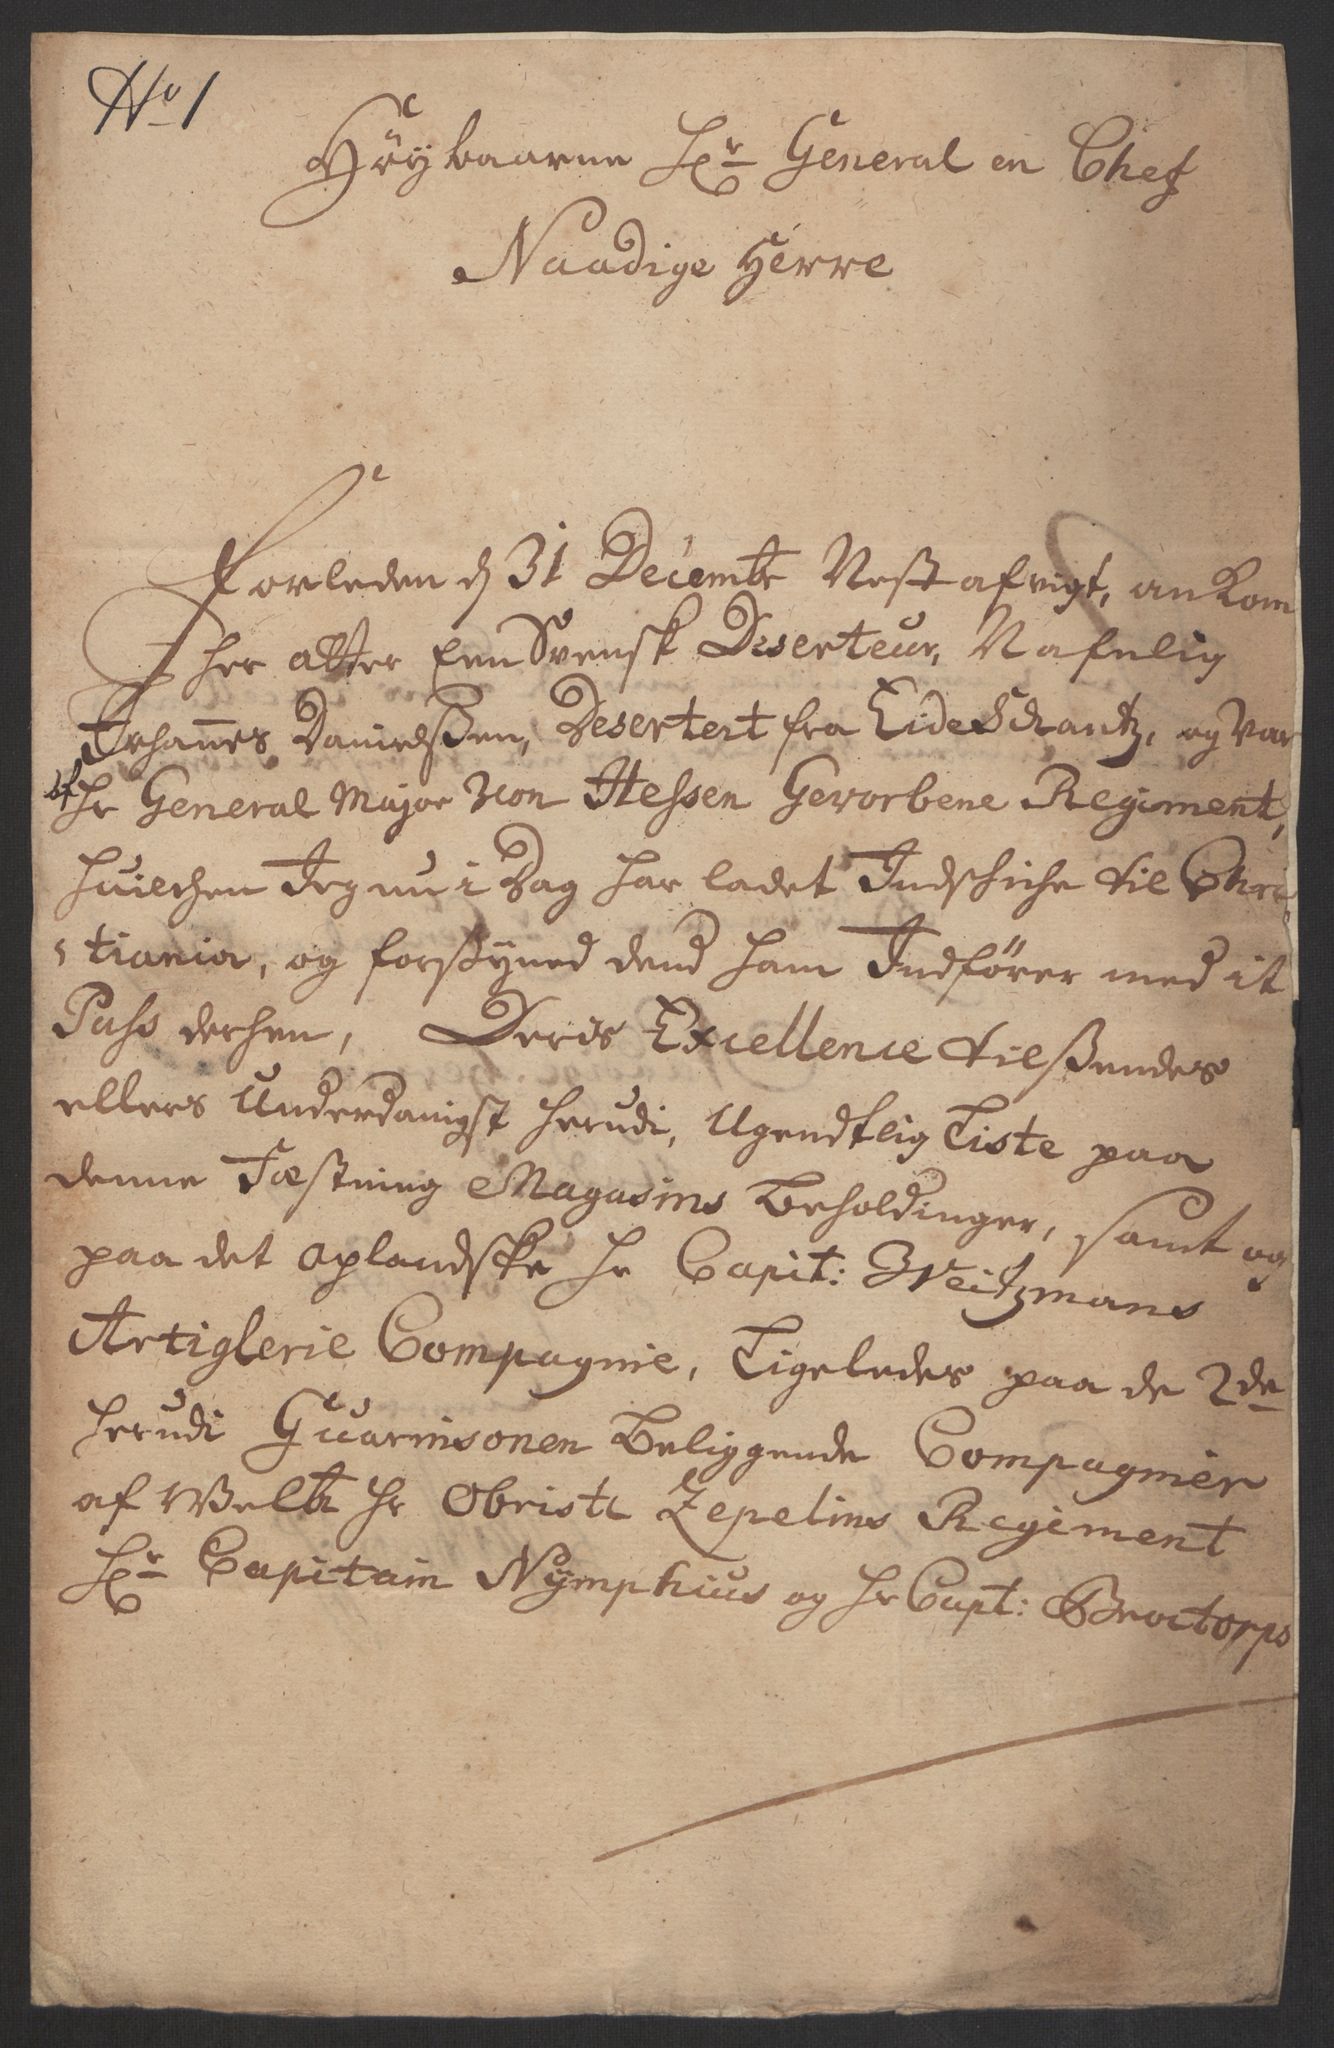 No 1
Höybaarne Hr General en Chef
Naadige Herre
Forleden d 31 Decembr Nest afvigt, ankom
her atter Een Svensk Deserteur, Nafnlig
Johannes Danielßen, Desertert fra Eide Schantz, og var
af Hr General Major von Hessen Gevorbene Regiment,
huilchen Jeg nu i Dag har ladet Indschiche til Chri-
stiania, og forsÿned dend ham Indförer med it
Pass derhen, Deris Excellence tilßendes
ellers Underdanigst herudi, Ugendtlig Liste paa
denne Fæstning Magasins Beholdinger, samt og
paa det oplandske Hr Capit: Weitzmans
Artiglerie Compagnie, Ligeledes paa de 2de
herudi Guarnisonen Beliggende Compagnier
af Welbr Hr Obriste Zepelins Regiment
Hr Capitain Nÿmphius og Hr Capt: Broctorps